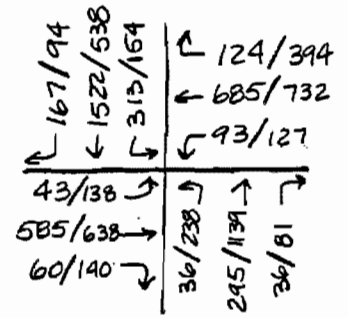 167/94
1522/538
313/154
124/394
685/732
93/127
43/138
585/638
60/140
36/238
295/1139
36/81